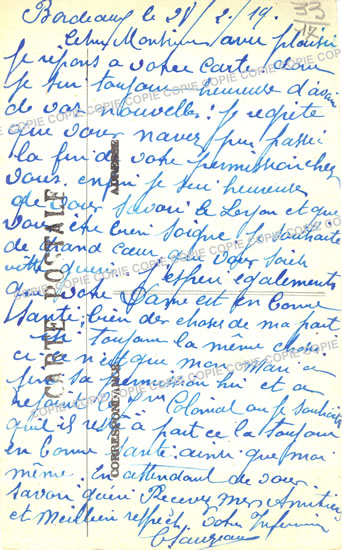 Bordeaux le 28/2/19.
33
14
Cher Monsieur avec plaisir
je répons a votre Carte. chere
je sui toujour heureuse d'avoir
de vos nouvelles; je regrete
que vous navez pu passé
la fin de votre permission chez
vous, enfin je sui heureuse
de vous savoir le et que
vous ête bien soigné je souhaite
de Grand Cœur que vous soiez
vitte gueri. j'espere egalements
que votre Dame est en bonne
Santé; bien des choses de ma part
ici toujour la meme chose,
ci ce n'est que mon Mari a
fini sa permission hui et a
rejoint le Colonial ou je souhaite
qu'il reste à part ça la toujour
en bonne Santé ainsi que moi
même. En attendant de vous
Savoir guéri Recevez mes Amitiés
et Meilleurs respects, Votre Infirmière
CARTE POSTALE
CORRESPONDANCE
ADRESSE
COPIE COPIE COPIE COPIE COPIE COPIE